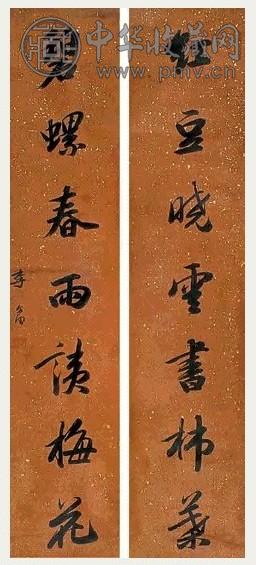 中华收藏网
www.pmv.cn
紅豆曉雲書柿葉
螺春雨讀梅花
李